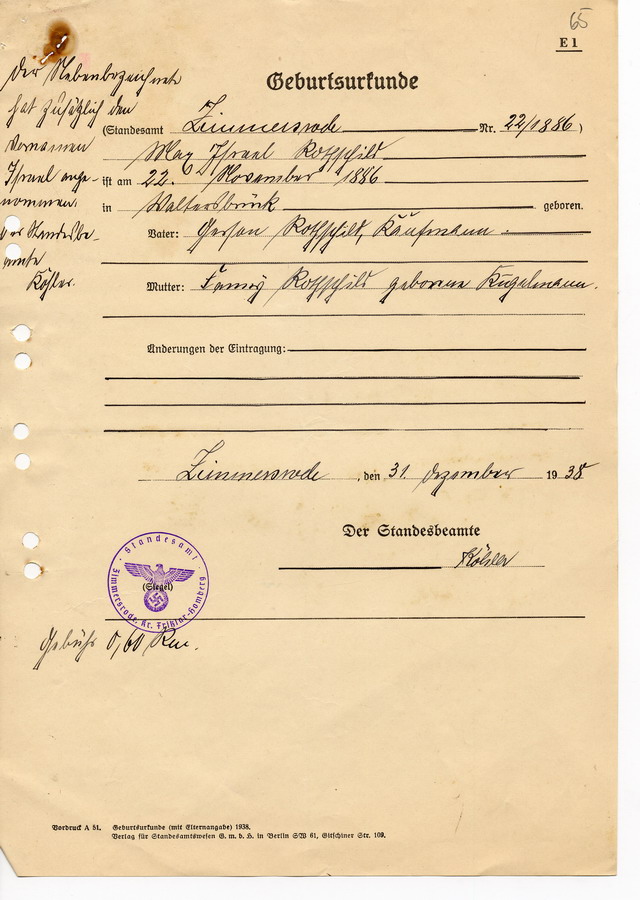 65
E 1
Der Nebenbezeichnete
hat zusätzlich den
Vornamen
Israel ange-
nommen.
Der Standesbe-
amte
Köhler.
Geburtsurkunde
(Standesamt Zimmersrode Nr. 22/1886)
Max Israel Rothschild
ist am 22. November 1886
in Waltersbrück geboren.
Vater: Gerson Rothschild, Kaufmann
Mutter: Fanny Rothschild geborene Kugelmann.
Änderungen der Eintragung:
Zimmersrode, den 31. Dezember 1938
Der Standesbeamte
Köhler
Standesamt
(Siegel)
Zimmersrode, Kr. Fritzlar-Homberg
Gebühr 0,60 Rm.
Vordruck A 51. Geburtsurkunde (mit Elternangabe) 1938.
Verlag für Standesamtswesen G. m. b. H. in Berlin SW 61, Gitschiner Str. 109.